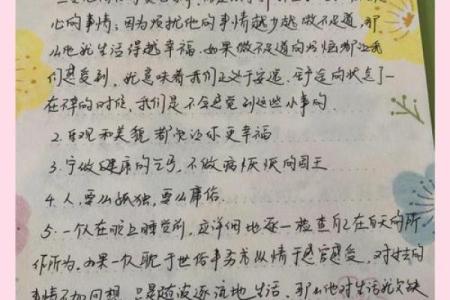 心的事情；因为烦扰他的事情越少越微不足道，那
么他就生活得越幸福。如果微不足道的烦恼都让我
们感受到，就意味着我们正处于安逸、舒适的状态了—
在不幸的时候，我们是不会感觉到这些小事的
2.乐观和美貌都会让你更幸福
3.宁做健康的乞丐，不做病恹恹的国王
4.人，要么孤独，要么庸俗.
5.一个人在晚上睡觉前，应详细地逐一检查自己在白天的所
作所为。如果一个人耽于世俗事务或纵情于感官感受，对过往的
事情不加回想，只是随波逐流地生活，那么他对生活就欠缺